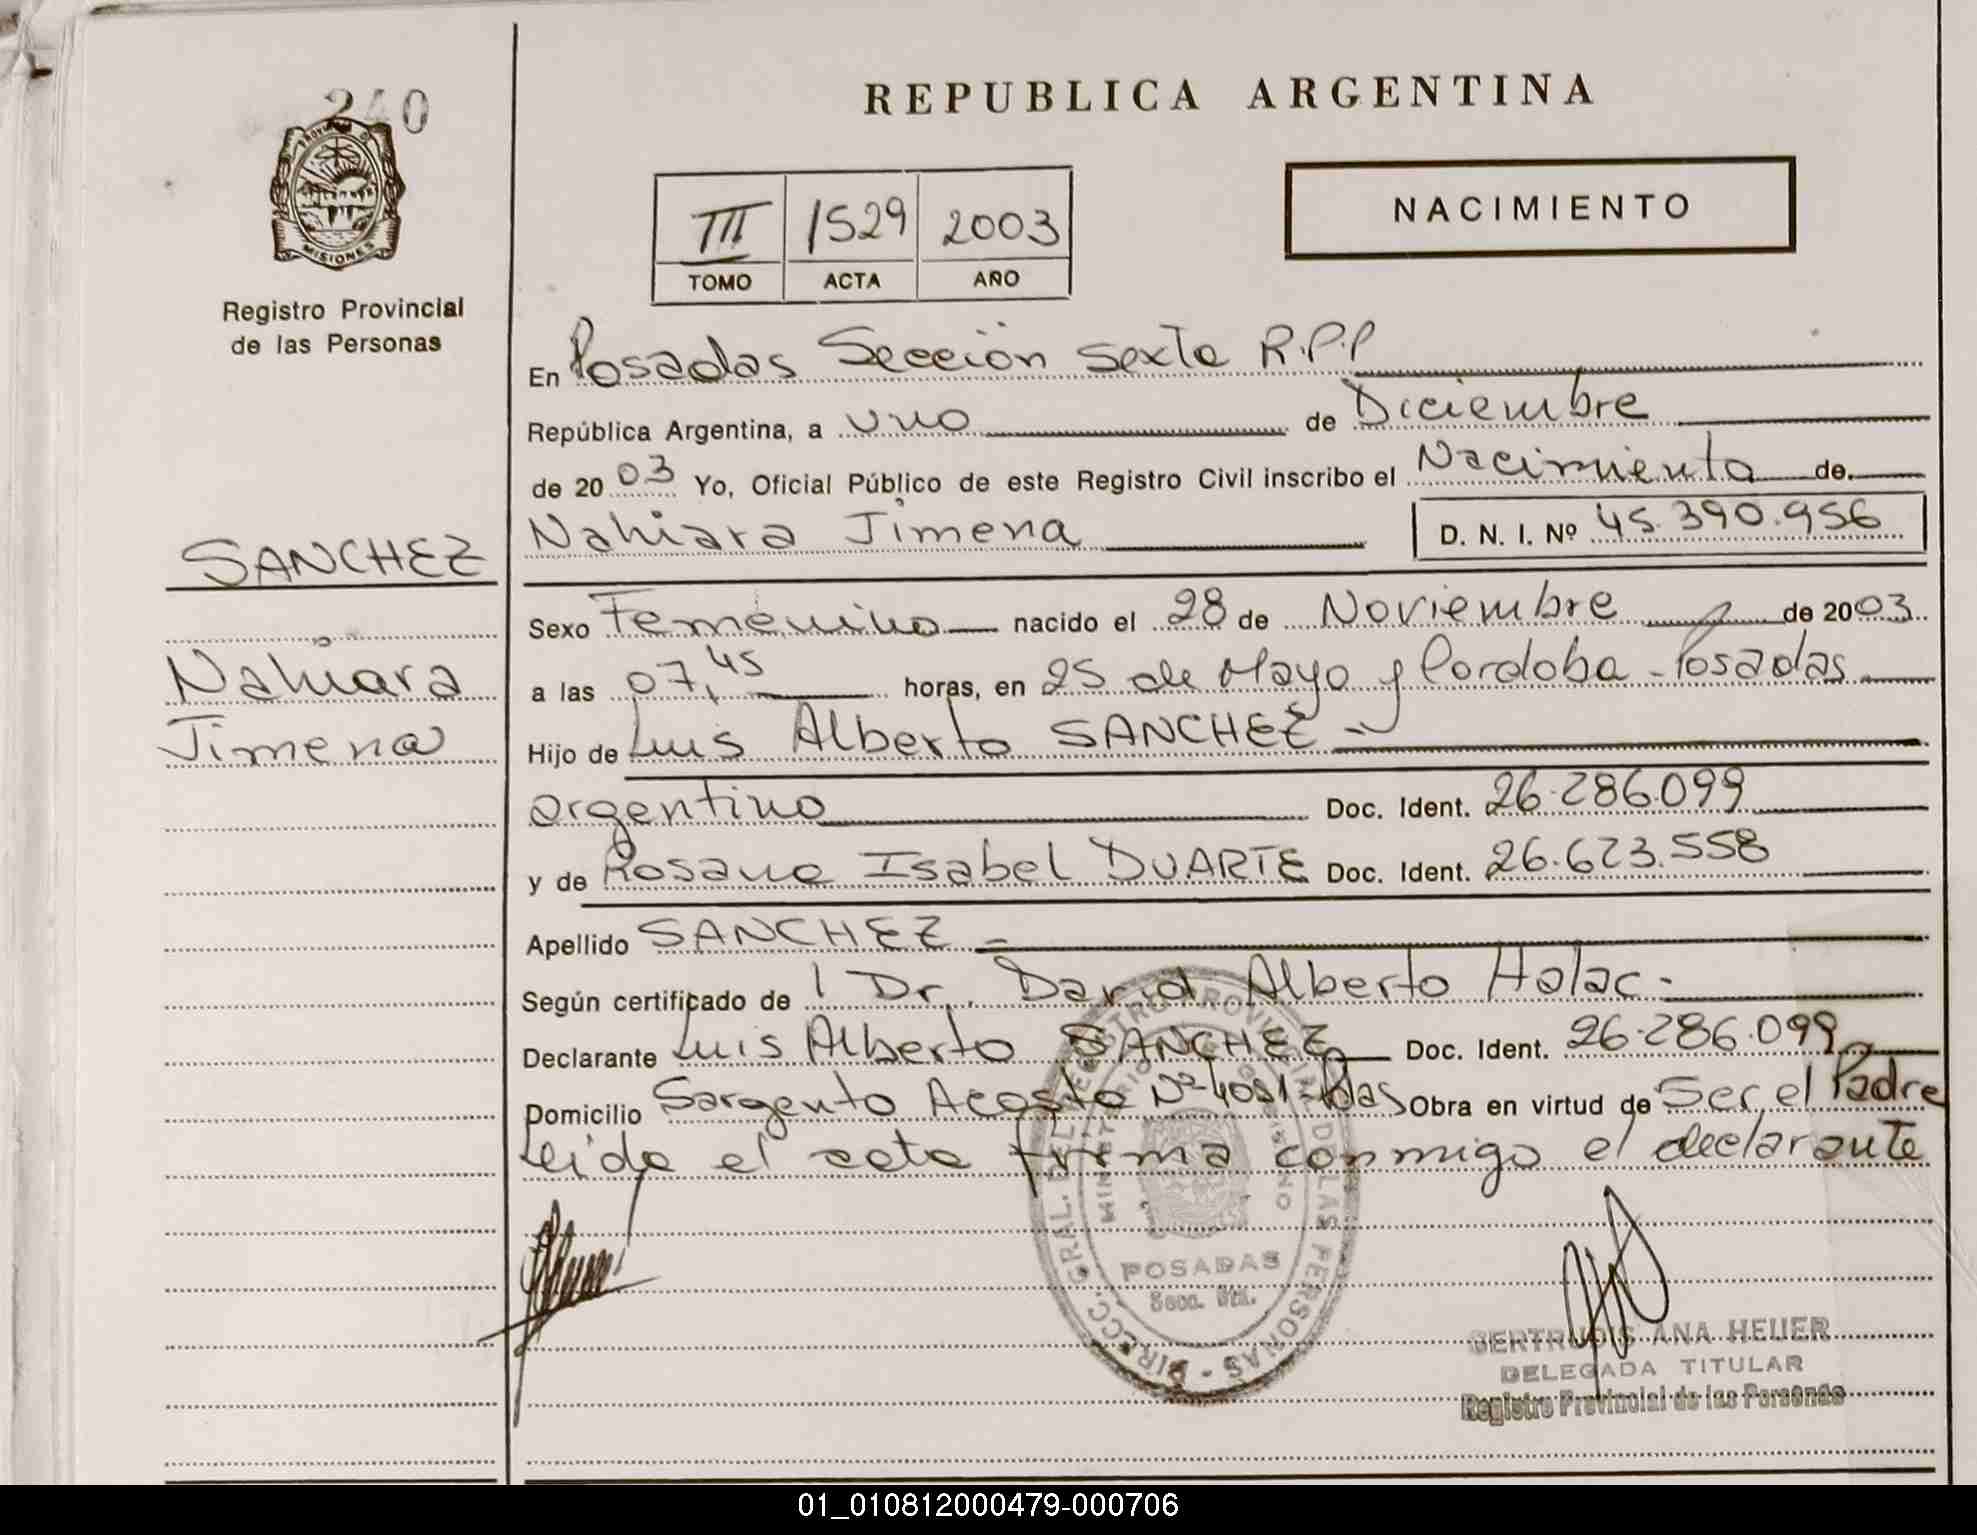 240
PROVINCIA DE
MISIONES
Registro Provincial
de las Personas
REPUBLICA ARGENTINA
III 1529 2003
TOMO ACTA AÑO
NACIMIENTO
En Posadas Sección Sexta R.P.P
República Argentina, a uno de Diciembre
de 2003 Yo, Oficial Público de este Registro Civil inscribo el Nacimiento de
Nahiara Jimena D. N. I. Nº 45.390.956
SANCHEZ
Nahiara
Jimena
Sexo Femenino nacido el 28 de Noviembre de 2003
a las 07,45 horas, en 25 de Mayo y Cordoba - Posadas
Hijo de Luis Alberto SANCHEZ -
argentino Doc. Ident. 26.286.099
y de Rosana Isabel DUARTE Doc. Ident. 26.623.558
Apellido SANCHEZ -
Según certificado de Dr. David Alberto Holac -
Declarante Luis Alberto SANCHEZ Doc. Ident. 26.286.099
Domicilio Sargento Acosta Nº 4051 - Pdas Obra en virtud de Ser el Padre
Leida el acta firma conmigo el declarante
DIRECC. GRAL. EL REGISTRO PROVINCIAL DE LAS PERSONAS
MINISTERIO DE GOBIERNO
POSADAS
Secc. 6ta.
GERTRUDIS ANA HEUER
DELEGADA TITULAR
Registro Provincial de las Personas
01_010812000479-000706